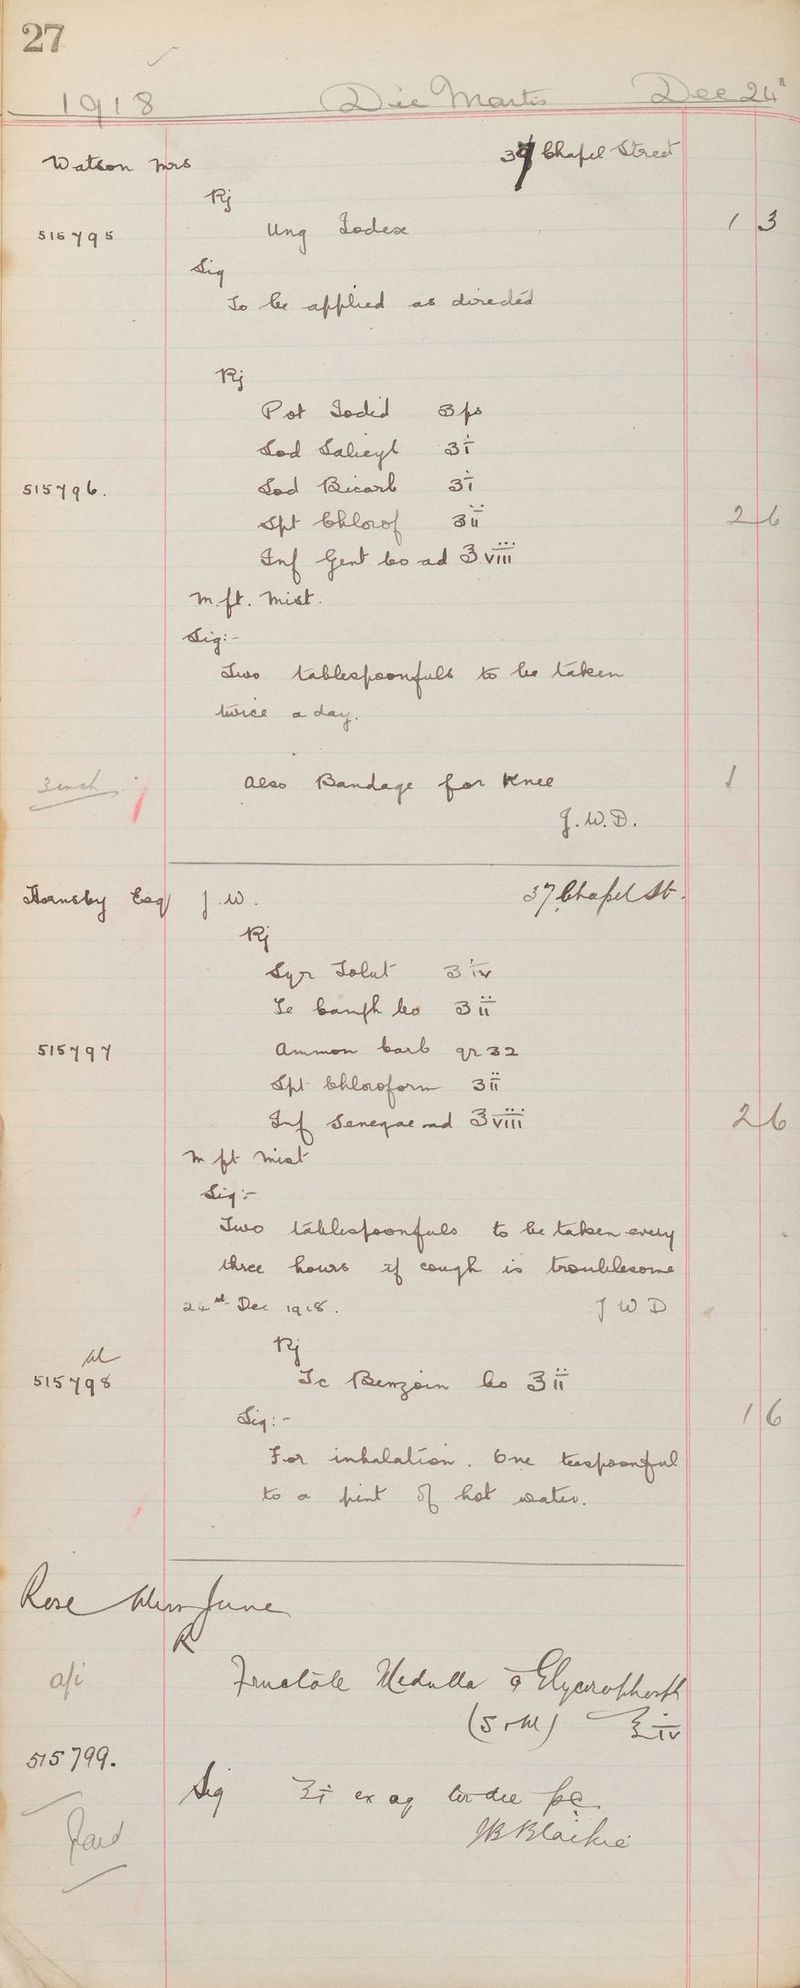 27
1918 Die Martis Dec 24"
Watson Mrs 37 Chapel Street
Rj
515795 Ung Iodex 1 3
Sig
To be applied as directed
Rj
Pot Iodid ʒ ſs
Sod Salicyl ʒi
515796. Sod Bicarb ʒi
Spt Chlorof ʒii 2 6
Inf Gent Co ad ℥viii
M. ft. Mist.
Sig:-
Two tablespoonfuls to be taken
twice a day.
3 inch. Also Bandage for Knee 1
J. W. D.
Hornsby Esq J. W. 37 Chapel St.
Rj
Syr Tolut ʒiv
Tc Camph Co ʒii
515797 Ammon Carb gr 32
Spt Chloroform ʒii
Inf Senegae ad ℥viii 2 6
M ft Mist
Sig:-
Two tablespoonfuls to be taken every
three hours if cough is troublesome
24th Dec 1918. J W D
Rj
515798 Tc Benzoin Co ℥ii
Sig:- 1 6
For inhalation. One teaspoonful
to a pint of hot water.
Rose Miss June
R
a/i Fructole Medulla c̄ Glycerophosph
(S & M) ℥iv
515799.
Sig ʒi ex aq ter die pc
Paid JB Blaikie